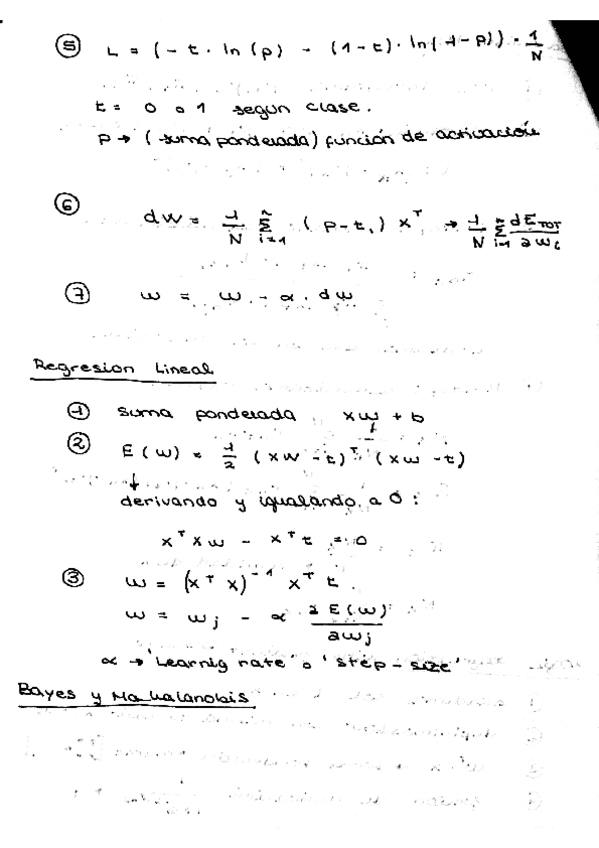 ⑤ L = (- t · ln(p) - (1-t) · ln(1-p)) · 1/N
t = 0 o 1 segun clase.
p → (suma ponderada) función de activación
⑥ dw = 1/N Σ i=1 n (p-t,) x^T → 1/N Σ i=1 n dE_TOT/∂w_i
⑦ w = w - α · dw
Regresion Lineal
① suma ponderada xw + b
② E(w) = 1/2 (xw - t)^T (xw - t)
derivando y igualando a 0 :
x^T x w - x^T t = 0
③ w = (x^T x)^-1 x^T t.
w = w_j - α ∂E(w)/∂w_j
α → 'Learnig rate' o 'step-size'
Bayes y Mahalanobis